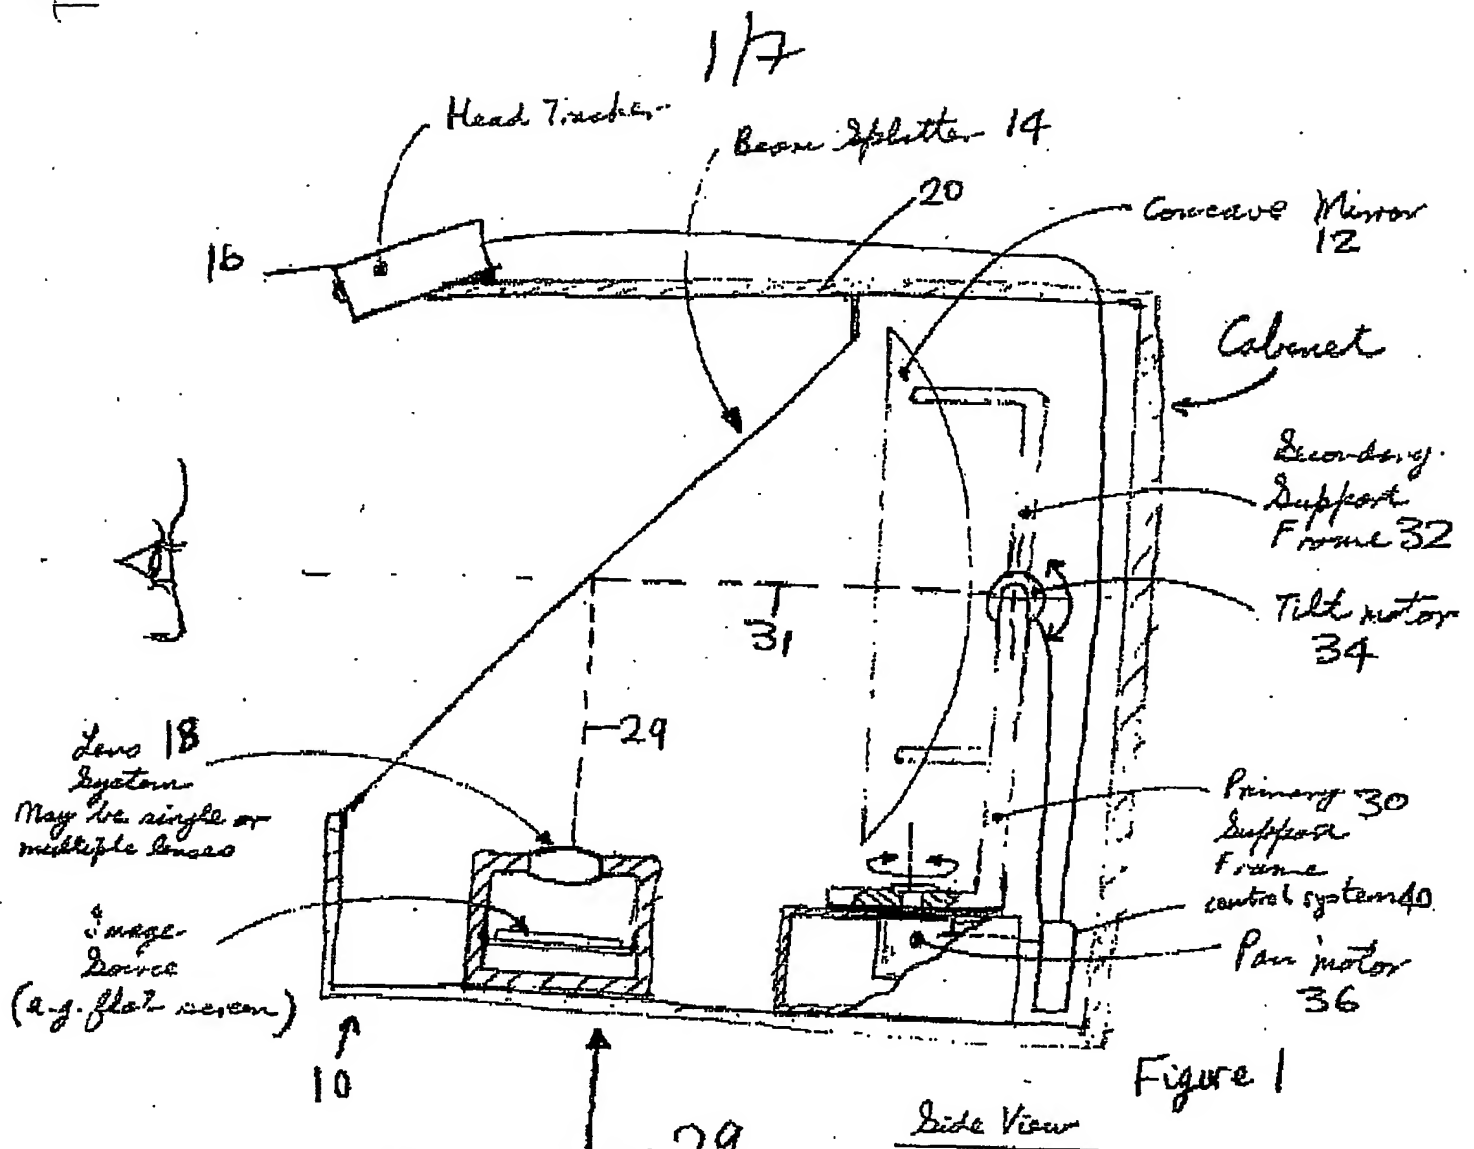 1/7
Head Tracker
Beam Splitter 14
20
Concave Mirror
12
16
Cabinet
Secondary
Support
Frame 32
Tilt motor
34
31
29
Lens 18
System
May be single or
multiple lenses
Primary 30
Support
Frame
control system 40
Image
Source
(e.g. flat screen)
Pan motor
36
10
Figure 1
Side View
29